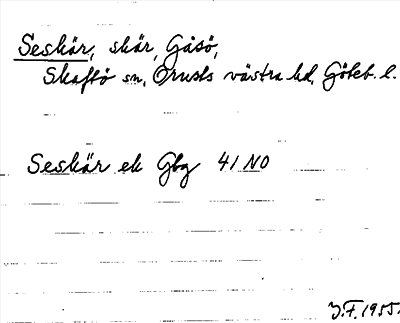 Seskär, skär, Gåsö,
Skaftö sn, Orusts västra hd, Göteb. l.
Seskär ek Gbg 41 NO
J.F. 1955.